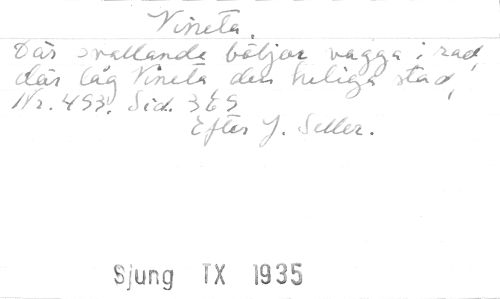 Vineta.
Där svallande böljor vagga i rad,
där låg Vineta den heliga stad,
Nr. 453. Sid. 365
Efter J. Seller.
Sjung TX 1935